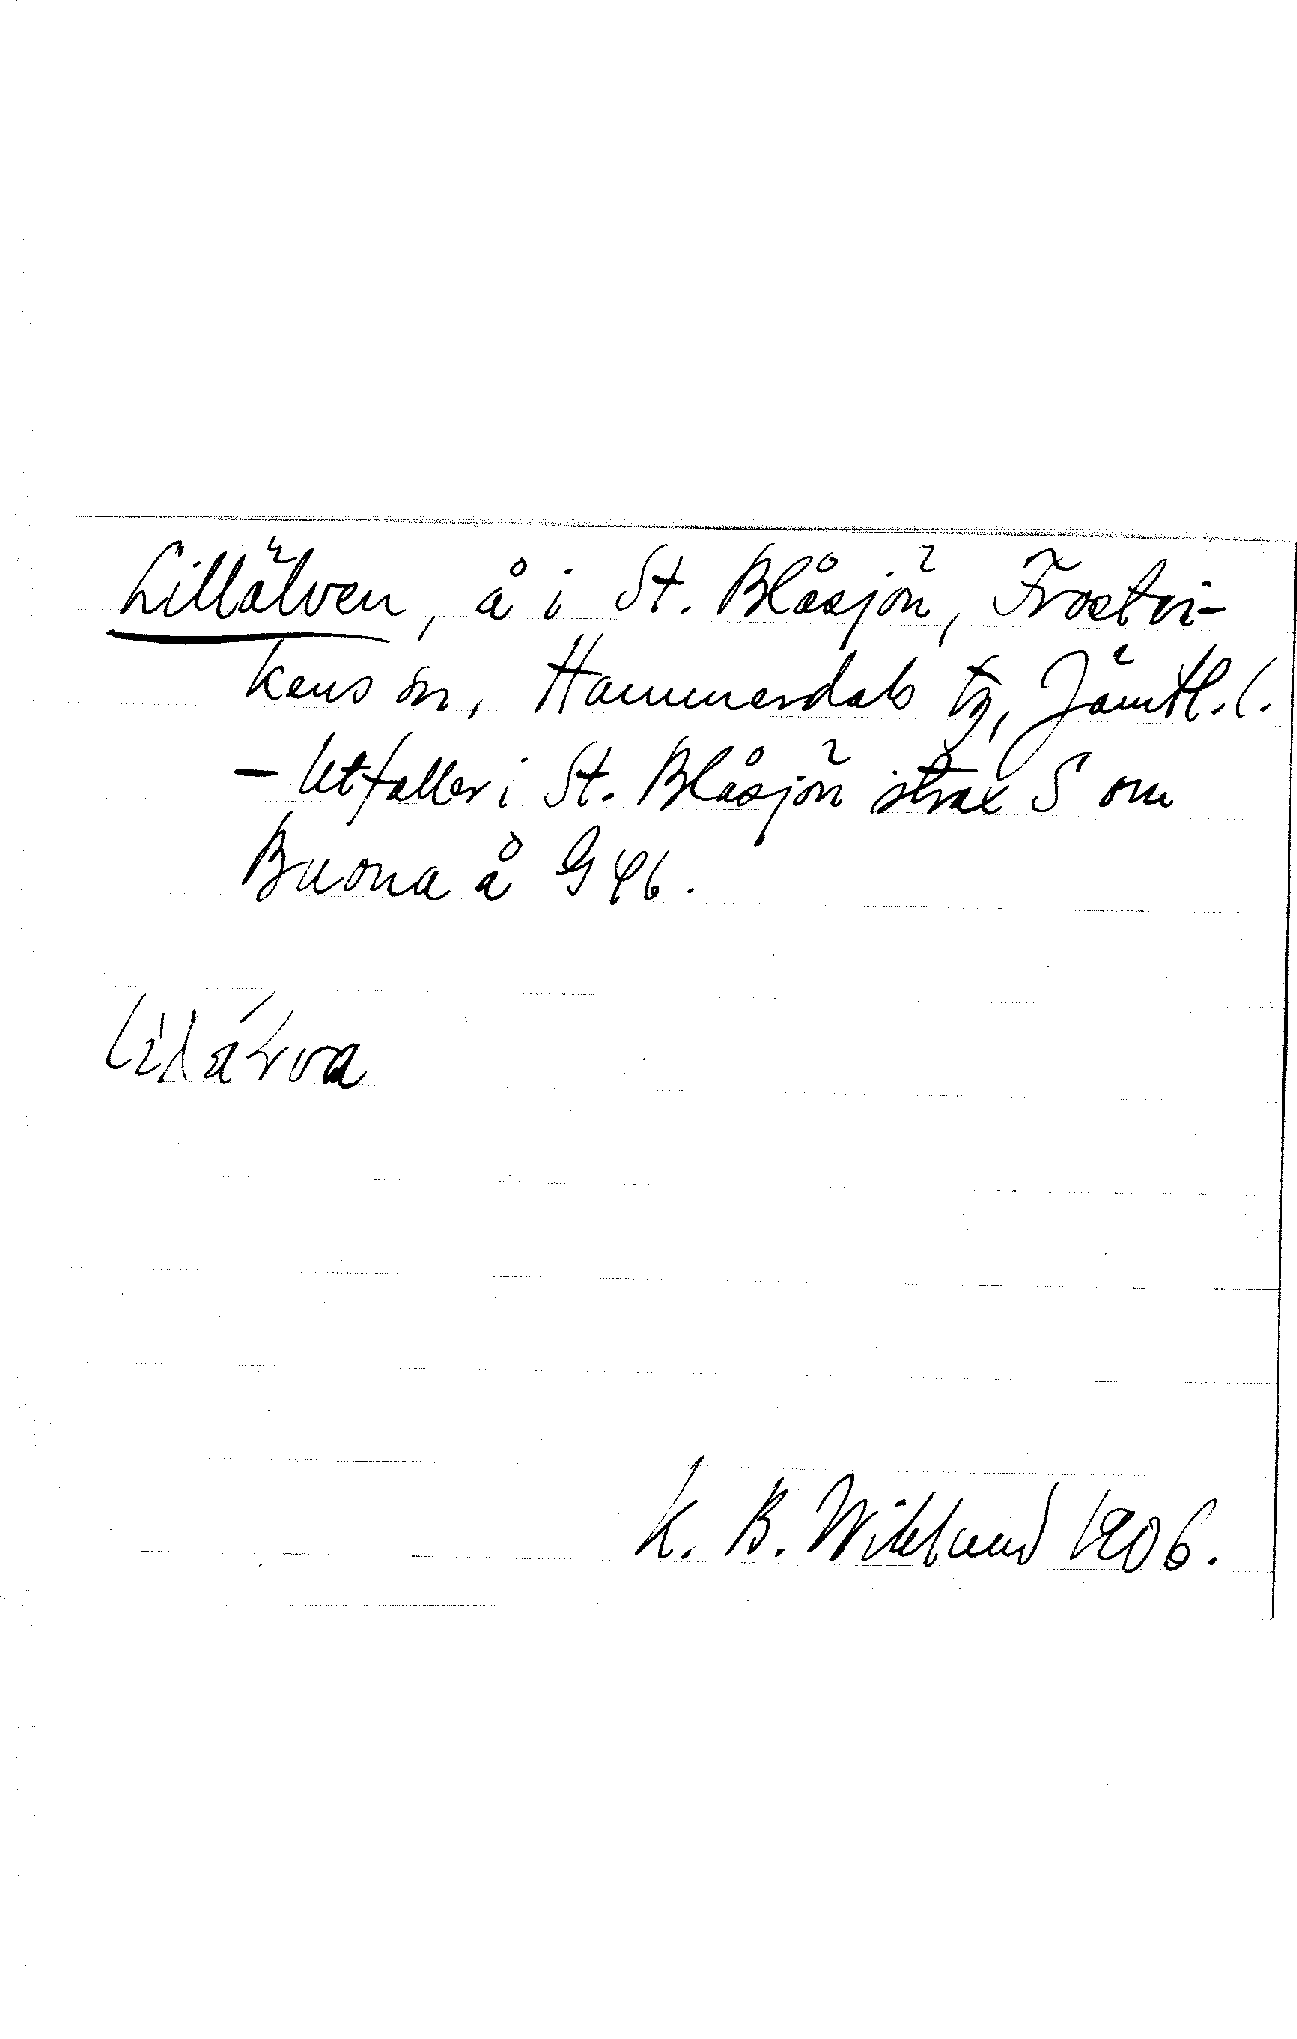 Lillälven, å i St. Blåsjön, Frostvi-
kens sn, Hammerdals tg, Jämtl. l.
– Utfaller i St. Blåsjön strax S om
Buona å G 46.
K. B. Wiklund 1906.